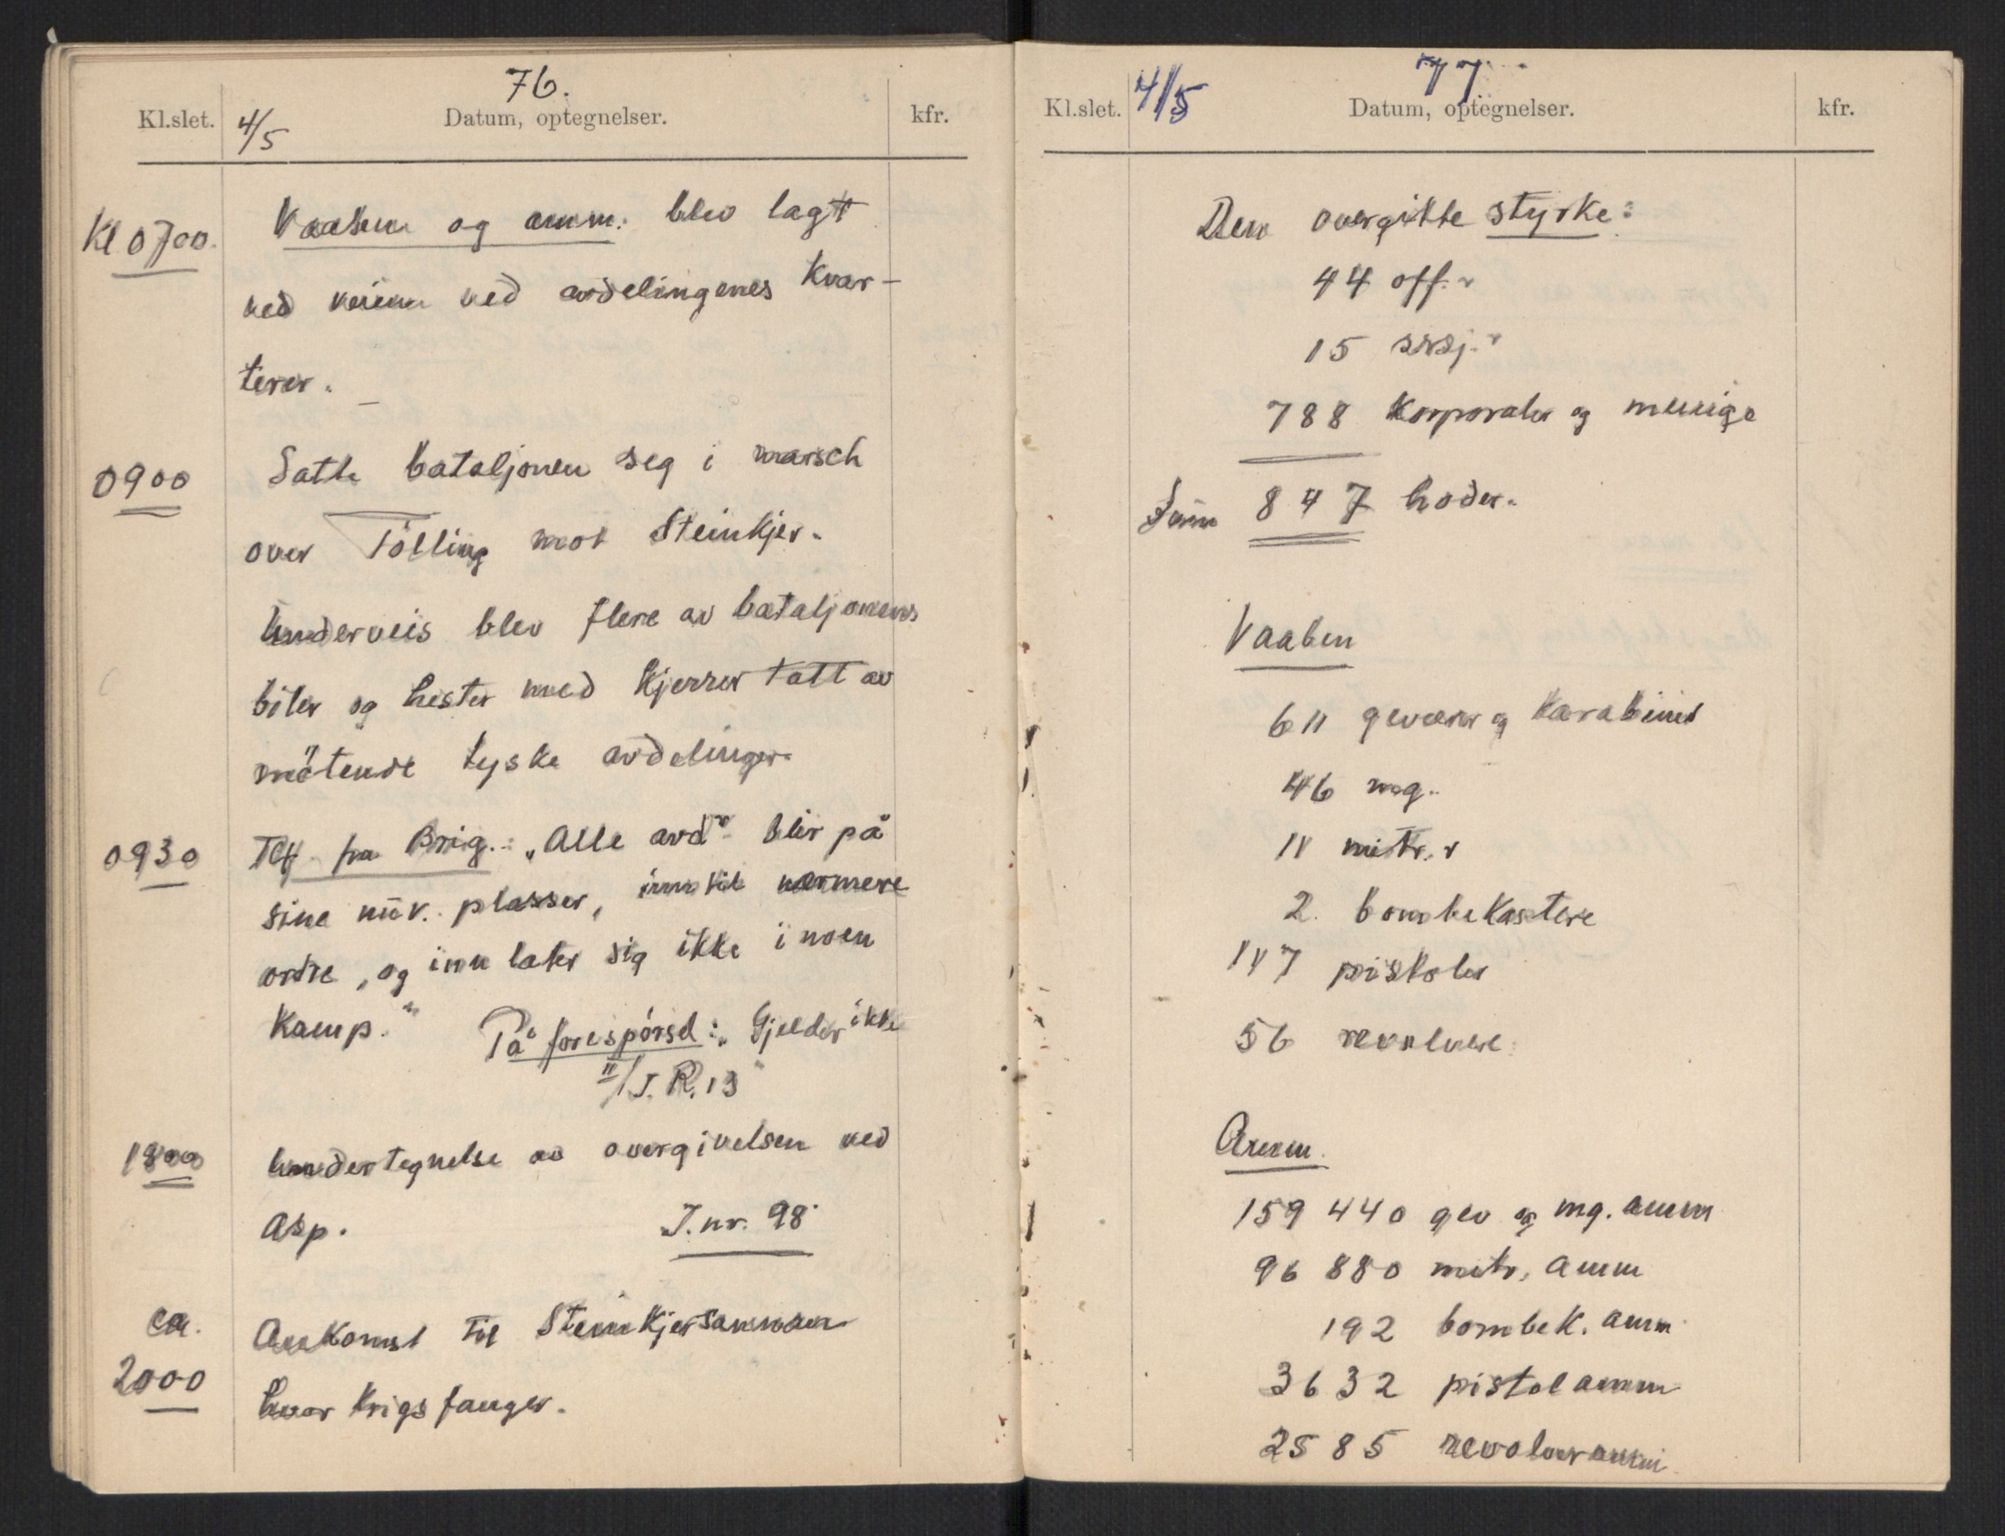 76.
Kl.slet. 4/5 Datum, optegnelser. kfr.
Kl 0700. Vaaben og amm. blev lagt
ved veien ved avdelingenes Kvar-
terer.
0900 Satte bataljonen seg i marsch
over Fölling mot Steinkjer.
Underveis blev flere av bataljonens
biler og hester med Kjerrer tatt av
møtende tyske avdelinger.
0930 Tlf. fra Brig.: „Alle avd.r blir på
sine nuv. plasser, inntil nærmere
ordre, og innlater sig ikke i noen
Kamp." På forespørsel: „Gjelder ikke
II/I.R.13"
1800 Undertegnelse av overgivelsen ved
Asp. J.nr. 98
ca. Ankomst til Steinkjersannan
2000 hvor Krigsfanger.
77.
Kl.slet. 4/5 Datum, optegnelser. kfr.
Den overgitte styrke:
44 off.r
15 sersj.r
788 Korporaler og menige
Sum 847 hoder.
Vaaben
611 geværer og Karabiner
46 mg.
11 mitr.r
2 bombekastere
117 pistoler
56 revolvere
Amm.
159 440 gev og mg. amm
96 880 mitr. amm
192 bombek. amm
3632 pistolamm
2585 revolveramm